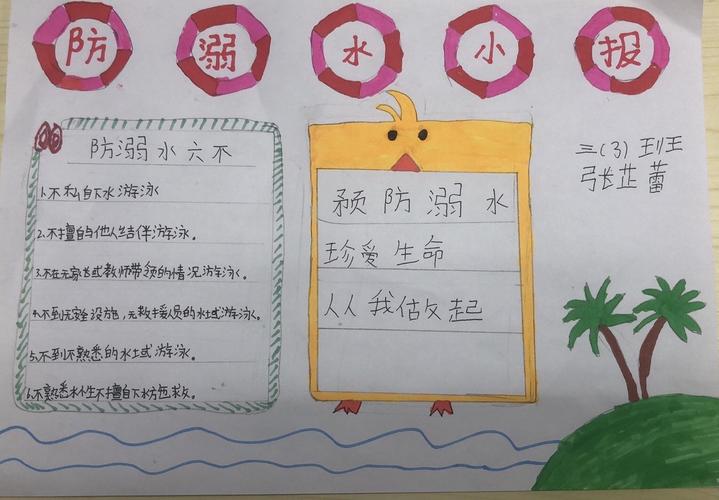 防溺水小报
防溺水六不
1.不私自下水游泳
2.不擅自与他人结伴游泳。
3.不在无家长或教师带领的情况游泳。
4.不到无安全设施，无救援人员的水域游泳。
5.不到不熟悉的水域游泳。
6.不熟悉水性不擅自下水方包救。
预防溺水
珍爱生命
从我做起
三(3)班
张芷蕾